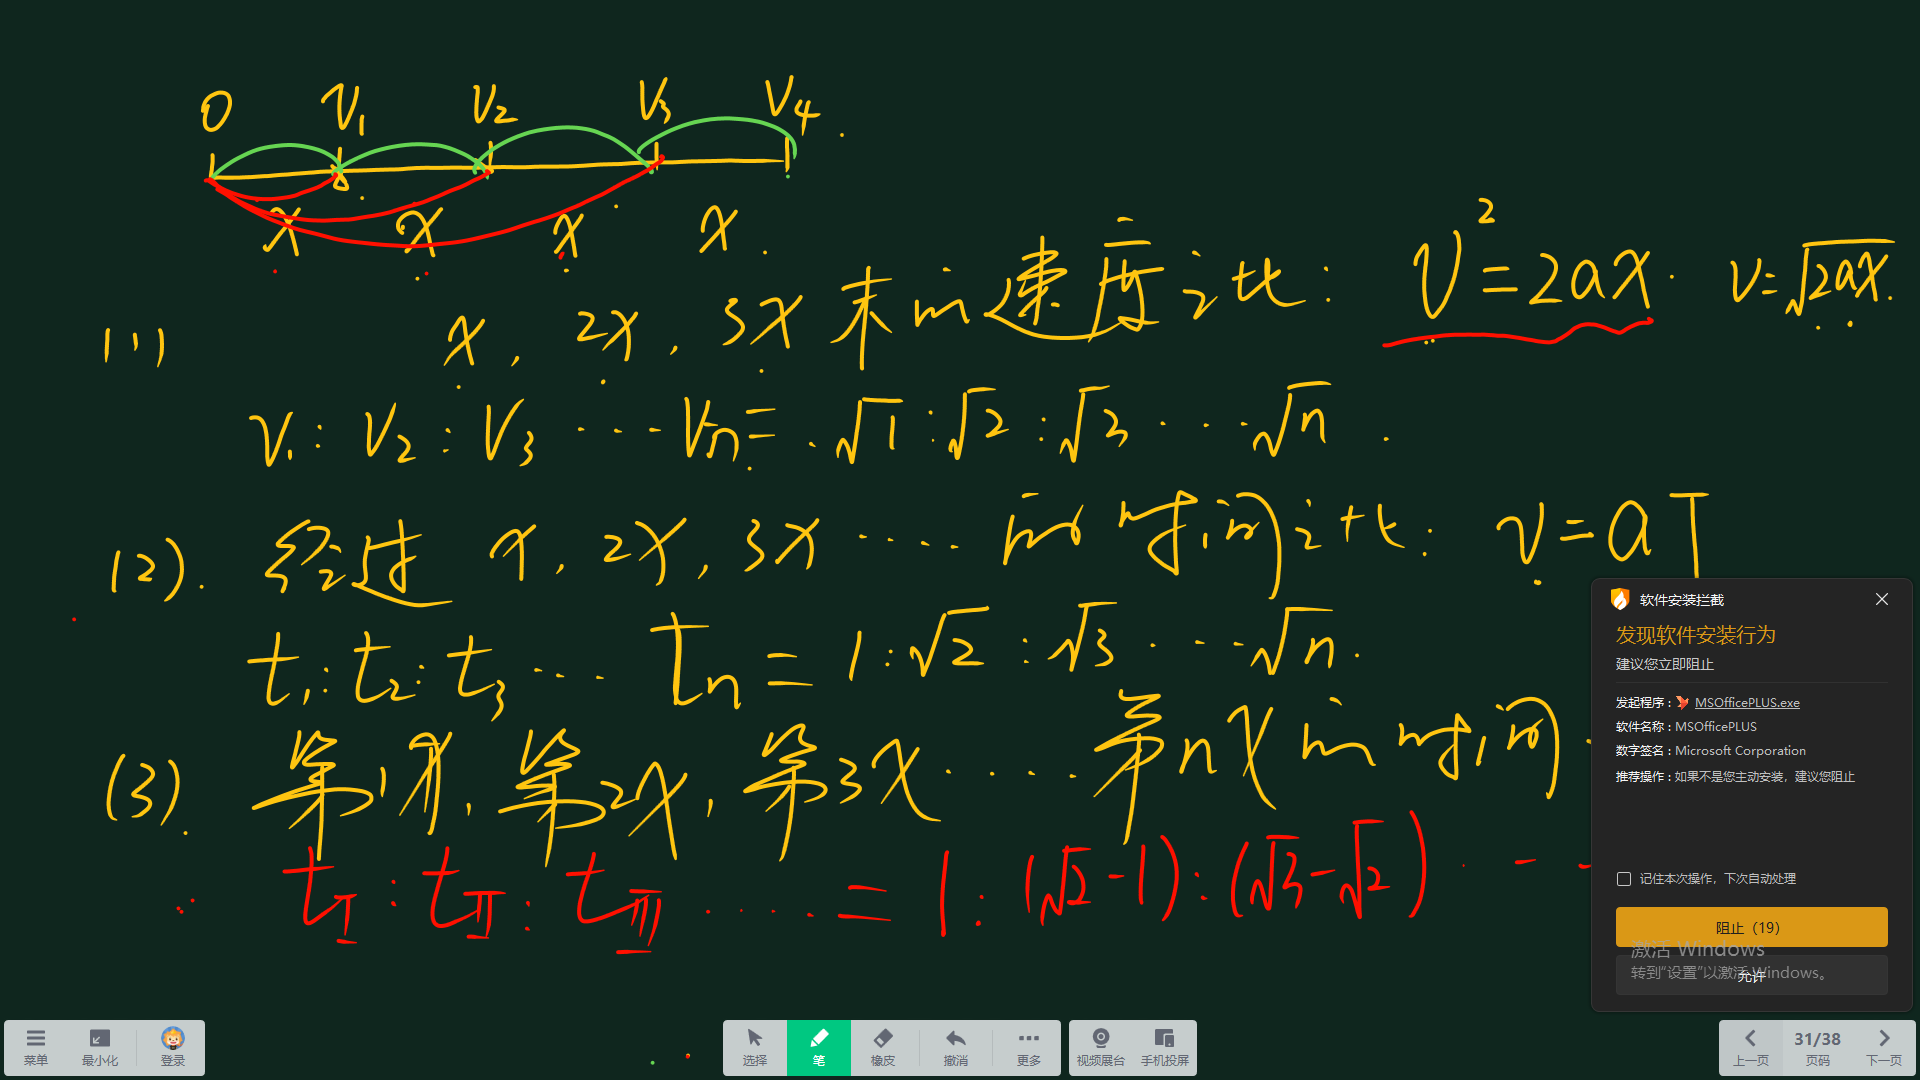 0 V₁ V₂ V₃ V₄
x x x x
(1) x, 2x, 3x 末的速度之比: V²=2ax. V=√2ax.
V₁:V₂:V₃ ····Vn=√1:√2:√3····√n.
(2). 经过 x, 2x, 3x ····的时间之比: V=aT
t₁:t₂:t₃ ··· tn=1:√2:√3····√n.
(3). 第1x, 第2x, 第3x ····第nx的时间.
tⅠ:tⅡ:tⅢ ····=1:(√2-1):(√3-√2)
软件安装拦截
发现软件安装行为
建议您立即阻止
发起程序：MSOfficePLUS.exe
软件名称：MSOfficePLUS
数字签名：Microsoft Corporation
推荐操作：如果不是您主动安装，建议您阻止
记住本次操作，下次自动处理
阻止（19）
允许
激活 Windows
转到“设置”以激活 Windows。
菜单 最小化 登录 选择 笔 橡皮 撤消 更多 视频展台 手机投屏 上一页 31/38 页码 下一页